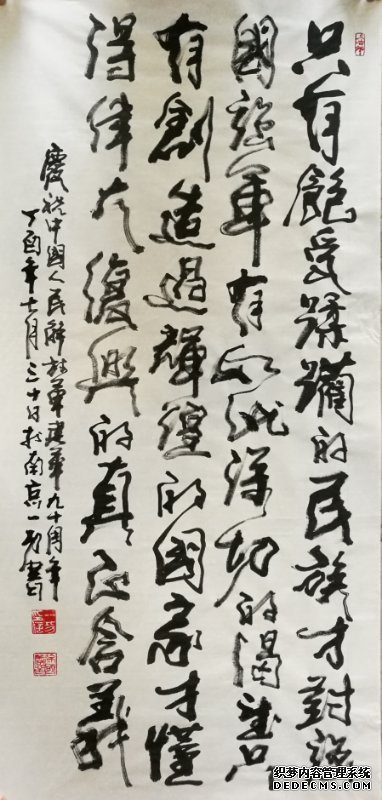 只有飽受蹂躪的民族才對強
國強軍有如此深切的渴望只
有創造過輝煌的國家才懂
得偉大復興的真正含義
慶祝中國人民解放軍建軍九十周年
丁酉年七月三十日於南京一書
织梦内容管理系统
DEDECMS.COM